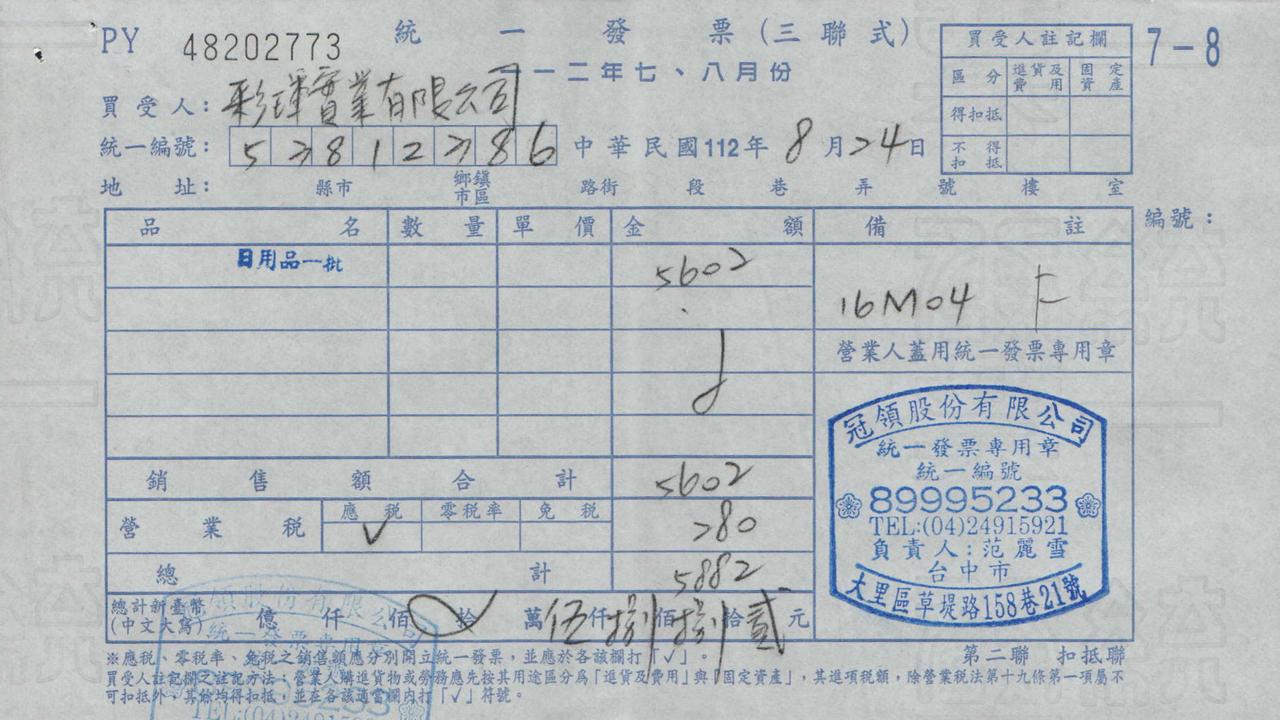 PY 48202773 統一發票(三聯式) 7-8
一一二年七、八月份
買受人註記欄
區分 進貨及費用 固定資產
得扣抵
不得扣抵
買受人: 彩琿實業有限公司
統一編號: 52812286 中華民國112年8月24日
地址: 縣市 鄉鎮市區 路街 段 巷 弄 號 樓 室
編號:
品名 數量 單價 金額 備註
日用品一批 5602
16M04 下
營業人蓋用統一發票專用章
銷售額合計 5602
營業稅 應稅 零稅率 免稅 280
✓
總計 5882
總計新臺幣(中文大寫) 億 仟 佰 拾 萬 伍仟捌佰捌拾貳元
冠領股份有限公司
統一發票專用章
統一編號
89995233
TEL:(04)24915921
負責人:范麗雪
台中市
大里區草堤路158巷21號
※應稅、零稅率、免稅之銷售額應分別開立統一發票,並應於各該欄打「✓」。
第二聯 扣抵聯
買受人註記欄之註記方法:營業人購進貨物或勞務應先按其用途區分為「進貨及費用」與「固定資產」,其進項稅額,除營業稅法第十九條第一項屬不
可扣抵外,其餘均得扣抵,並在各該適當欄內打「✓」符號。